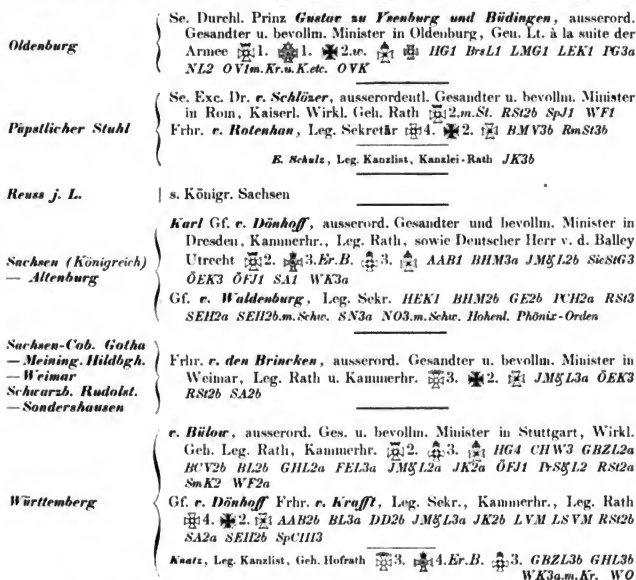 Oldenburg
Se. Durchl. Prinz Gustav zu Ysenburg und Büdingen, ausserord.
Gesandter u. bevollm. Minister in Oldenburg, Gen. Lt. à la suite der
Armee 1. 1. 2.w. HG1 BrsL1 LMG1 LEK1 PG3a
NL2 OV1m.Kr.u.K.etc. OVK
Päpstlicher Stuhl
Se. Exc. Dr. v. Schlözer, ausserordentl. Gesandter u. bevollm. Minister
in Rom, Kaiserl. Wirkl. Geh. Rath 2.m.St. RSt2b SpJ1 WF1
Frhr. v. Rotenhan, Leg. Sekretär 4. 2. BMV3b RmSt3b
E. Schulz, Leg. Kanzlist, Kanzlei-Rath JK3b
Reuss j. L.
s. Königr. Sachsen
Sachsen (Königreich)
— Altenburg
Karl Gf. v. Dönhoff, ausserord. Gesandter und bevollm. Minister in
Dresden, Kammerhr., Leg. Rath, sowie Deutscher Herr v. d. Balley
Utrecht 2. 3.Er.B. 3. AAB1 BHM3a JM&L2b SicStG3
ÖEK3 ÖFJ1 SA1 WK3a
Gf. v. Waldenburg, Leg. Sekr. HEK1 BHM2b GE2b PCH2a RSt3
SEH2a SEH2b.m.Schw. SN3a NO3.m.Schw. Hohenl. Phönix-Orden
Sachsen-Cob. Gotha
— Meining. Hildbgh.
— Weimar
Schwarzb. Rudolst.
— Sondershausen
Frhr. v. den Brincken, ausserord. Gesandter u. bevollm. Minister in
Weimar, Leg. Rath u. Kammerhr. 3. 2. JM&L3a ÖEK3
RSt2b SA2b
Württemberg
v. Bülow, ausserord. Ges. u. bevollm. Minister in Stuttgart, Wirkl.
Geh. Leg. Rath, Kammerhr. 2. 3. HG4 CHW3 GBZL2a
BCV2b BL2b GHL2a FEL3a JM&L2a JK2a ÖFJ1 PrS&L2 RSt2a
SmK2 WF2a
Gf. v. Dönhoff Frhr. v. Krafft, Leg. Sekr., Kammerhr., Leg. Rath
4. 2. AAB2b BL3a DD2b JM&L3a JK2b LVM LSVM RSt2b
SA2a SEH2b SpCIII3
Knatz, Leg. Kanzlist, Geh. Hofrath 3. 4.Er.B. 3. GBZL3b GHL3b
WK3a.m.Kr. WO